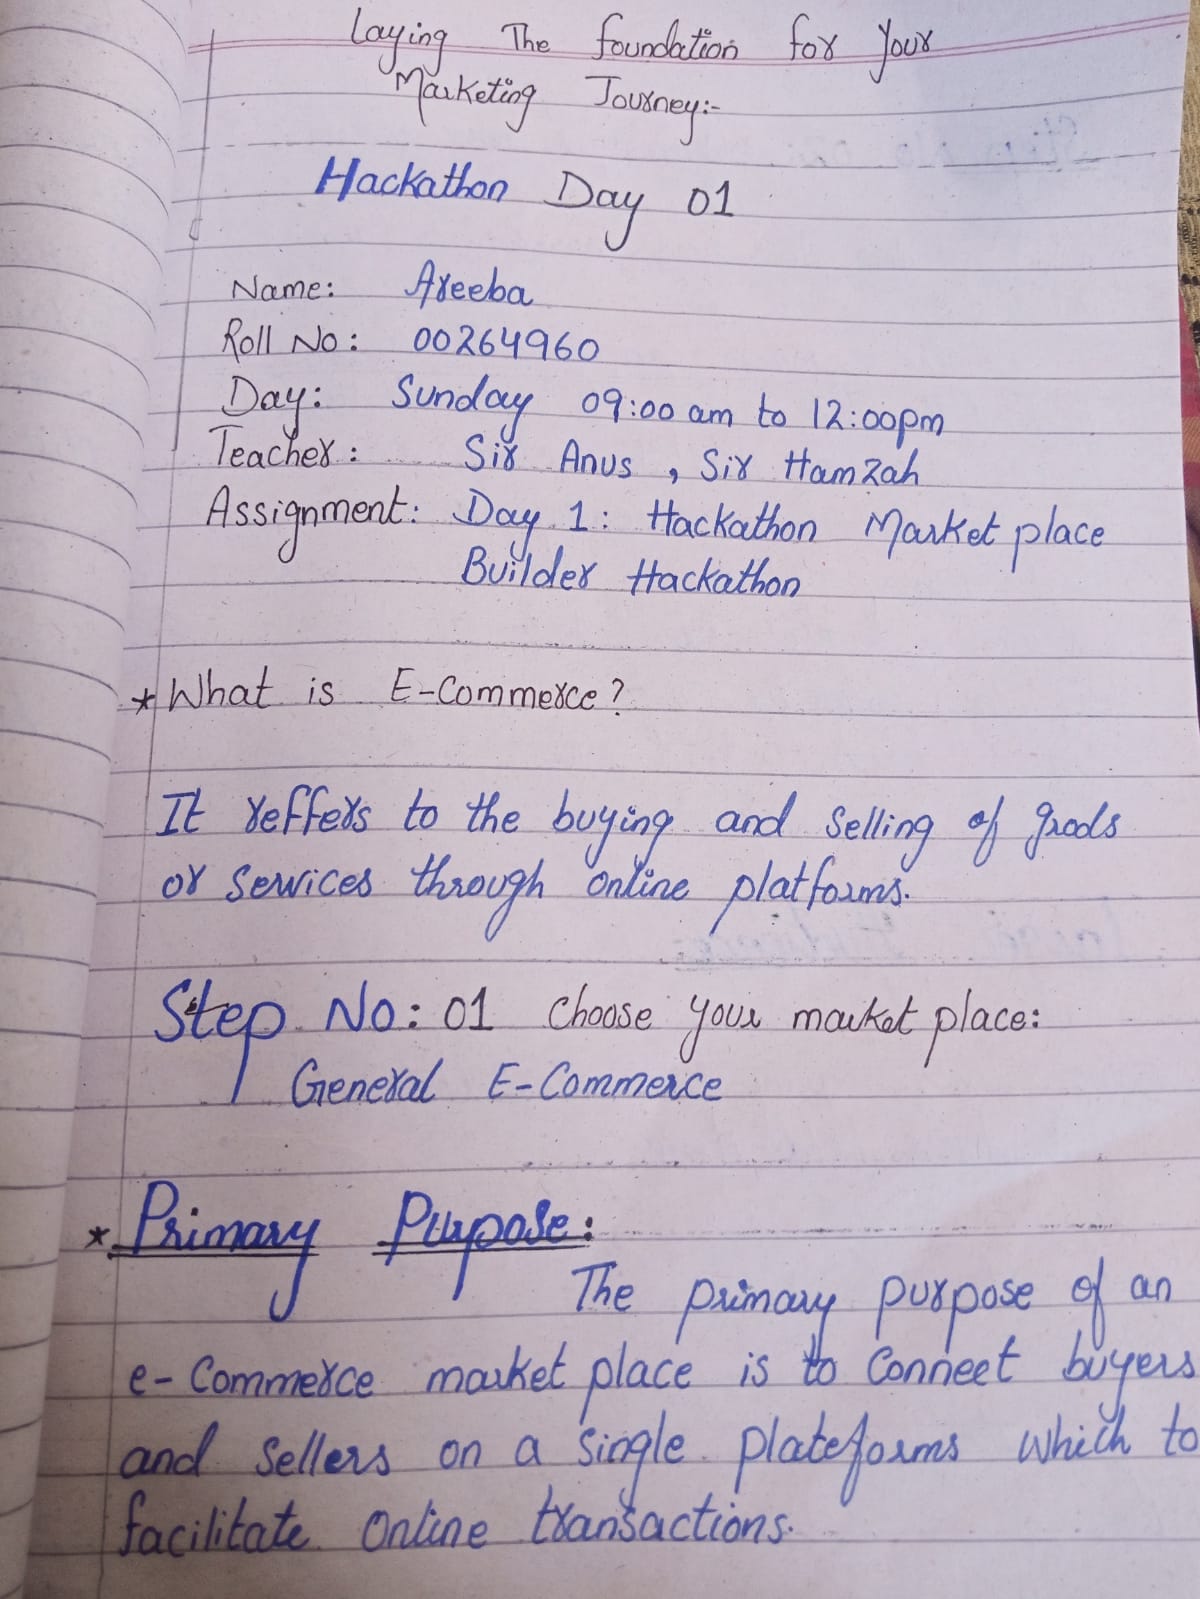 Laying The foundation for your
Marketing Journey:-
Hackathon Day 01
Name: Areeba
Roll No: 00264960
Day: Sunday 09:00 am to 12:00pm
Teacher: Sir Anus, Sir Hamzah
Assignment: Day 1: Hackathon Market place
Builder Hackathon
* What is E-Commerce?
It reffers to the buying and selling of goods
or services through online platforms.
Step No: 01 Choose your market place:
General E-Commerce
* Primary Purpose:
The primary purpose of an
e-Commerce market place is to Connect buyers
and sellers on a single plateforms which to
facilitate online transactions.